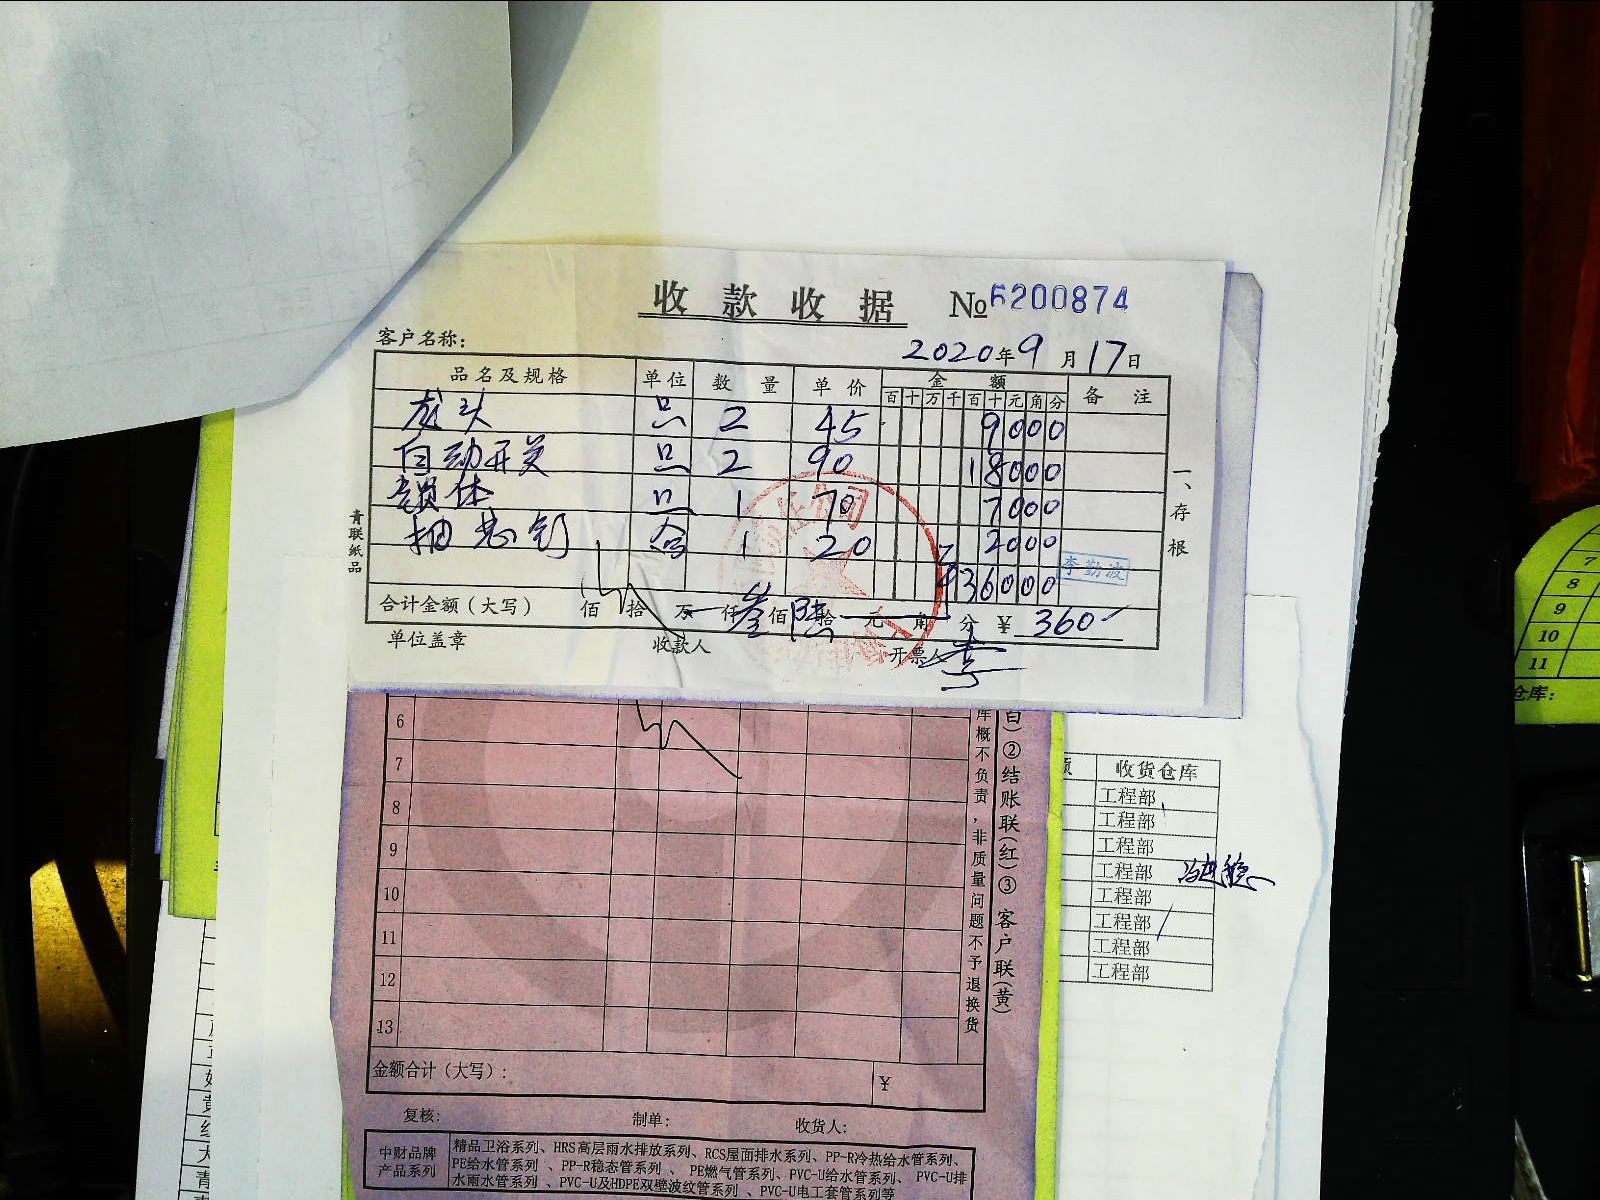 收款收据 №6200874
客户名称：
2020年9月17日
品名及规格 单位 数量 单价 金额 备注
百十万千百十元角分
龙头 只 2 45 9000
自动开关 只 2 90 18000
锁体 只 1 70 7000
抽芯钉 盒 1 20 2000
36000
李勤波
合计金额（大写） 佰 拾 万 仟 叁佰 陆拾 元 角 分 ￥ 360
单位盖章 收款人 开票人 李
一、存根
青联纸品
6
7
8
9
10
11
12
13
金额合计（大写）： ￥
复核： 制单： 收货人：
中财品牌产品系列
精品卫浴系列、HRS高层雨水排放系列、RCS屋面排水系列、PP-R冷热给水管系列、
PE给水管系列、PP-R稳态管系列、PE燃气管系列、PVC-U给水管系列、PVC-U排
水雨水管系列、PVC-U及HDPE双壁波纹管系列、PVC-U电工套管系列等
库概不负责，非质量问题不予退换货
白）②结账联（红）③客户联（黄）
收货仓库
工程部
工程部
工程部
工程部
工程部
工程部
工程部
工程部
7
8
9
10
11
仓库：